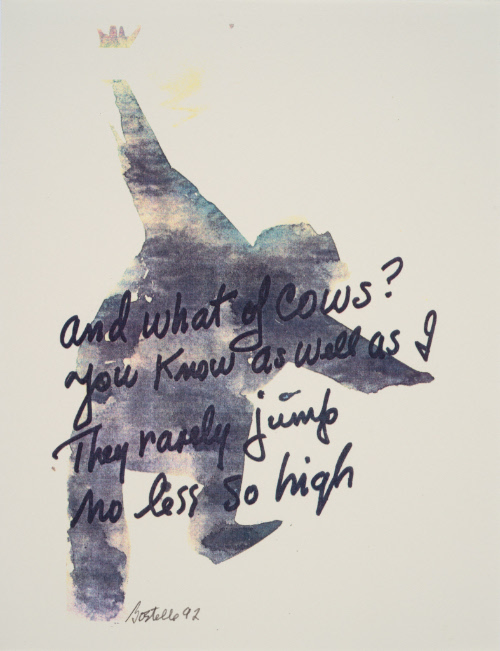 and what of cows?
you know as well as I
They rarely jump
no less so high
Bostelle 92